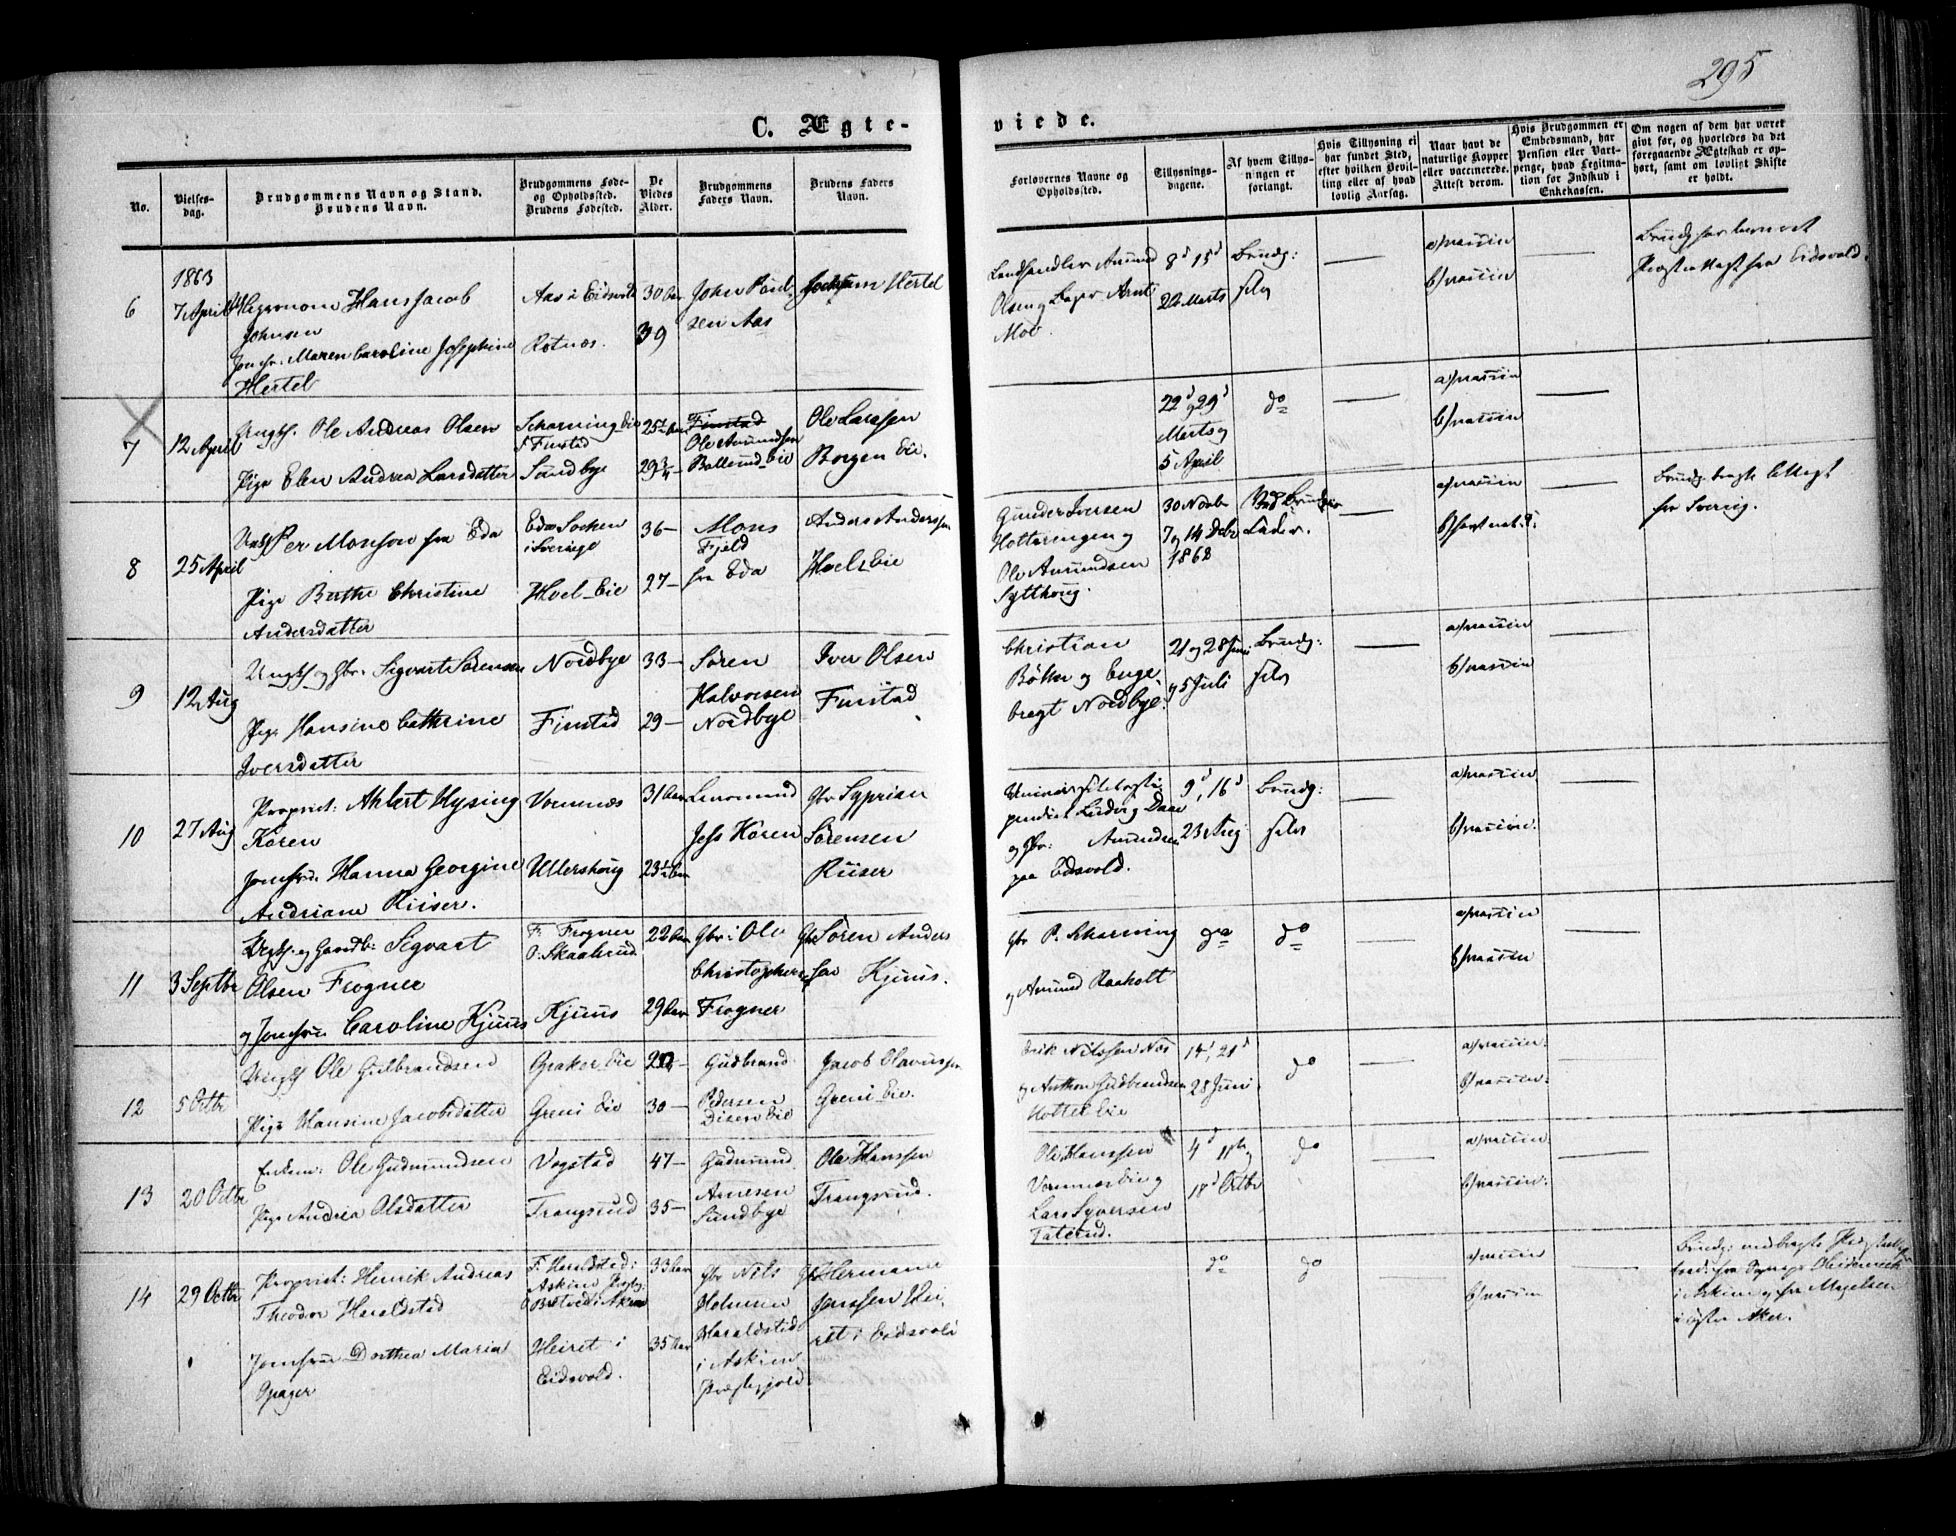 295
C. Ægte-
viede.
No.
Vielses-
dag.
Brudgommens Navn og Stand.
Brudens Navn.
Brudgommens Føde-
og Opholdssted.
Brudens Fødested.
De
Viedes
Alder.
Brudgommens
Faders Navn.
Brudens Faders
Navn.
Forlovernes Navne og
Opholdssted.
Tillysnings-
dagene.
Af hvem Tillys-
ningen er
forlangt.
Hvis Tillysning ei
har fundet Sted,
efter hvilken Bevil-
ling eller af hvad
lovlig Aarsag.
Naar havt de
naturlige Kopper
eller vaccinerede.
Attest derom.
Hvis Brudgommen er
Embedsmand, har
Pension eller Vart-
penge, hvad Legitima-
tion for Indskud i
Enkekassen.
Om nogen af dem har været
givt før, og hvorledes da det
foregaaende Ægteskab er op-
hørt, samt om lovligt Skifte
er holdt.
1863
6
7 April
Hans Jacob
Johnsen
Jomfr: Maren Caroline Josephine
Hertel
Aas i Eidsvold
Rotnæs.
30 Aar
39
John Poul-
sen Aas
Jochum Hertel
Landhandler Amund
Olsen og Arnt
Moe.
8d 15d
22 Marts
Brudg:
selv
a/ vaccin
b/ vaccin
Eidsvold.
7
12 April
Ungk. Ole Andreas Olsen
Pige Elen Andrea Larsdatter
Schærning Eie
F. Finstad
Sandbye
25½ Aar
29¾ -
Finstad
Ole Amundsen
Bollerud Eie
Ole Larssen
Borgen Eie.
22d og 29d
Marts og
5 April
do
a/ vaccin
b/ vaccin
8
25 April
Ungk Per Monson fra Eda
Pige Berthe Christine
Andersdatter
Eda Socken
i Sverige
Hoel-Eie
36 -
27 -
Mons
Fjeld
fra Eda
Anders Anderssen
Hoels Eie
Gunder Iversen
Hotteringen og
Ole Amundsen
30 Novbr
7 og 14 Debr
1862
a/ vaccin
Brudg. bragte Attest
fra Sverig.
9
12 Aug
Ungk og Gbr. Sigvart Sørensen
Pige Hansine Cathrine
Iversdatter
Nordbye
Finstad
33 -
29 -
Søren
Halvorsen
Nordbye
Iver Olsen
Finstad
Christian
Bøhn og Enge-
bregt Nordbye.
21 og 28 Juni
og 5 Juli
Brudg:
selv
a/ vaccin
b/ vaccin
10
27 Aug
Propriet: Ahlert Hysing
Koren
Jomfru Hanna Georgine
Andriane Riiser.
Vormnæs
Ullershoug
31 Aar
23½ Aar
Jess Koren
Gbr Syprian
Sørensen
Riiser
Universitetssti-
pendiat Ludvig Daae
og Gbr: Amundsen
paa Eidsvold.
9d, 16d
23 Aug
Brudg:
selv
a/ vaccin
b/ vaccin.
11
3 Septbr
Ungk. og Gaardb: Sigvart
Olsen Frogner
og Jomfru Caroline Kjuus
F. Frogner
O. Skaalerud
Kjuus
22 Aar
29 Aar
Gbr: Ole
Christophersen
Frogner
Gbr Søren Anders
sen Kjuus.
Gbr P. Scharning
og Amund Raaholt
do
do
a/ vaccin
b/ vaccin
12
5 Octbr
Ungk Ole Gulbrandsen
Pige Hansine Jacobsdatter
Opaker Eie
Greni Eie
30 -
Gudbrand
Pedersen
Disen Eie
Jacob Olavussen
Greni Eie.
Erik Nilssen Næs
og Anthon Gudbrandsen
Hotter Eie
14d, 21d
28 Juni
do
a/ vaccin.
b/ vaccin.
13
20 Octbr
Enkem: Ole Gudmundsen
Pige Andrea Olsdatter
Vogstad
Trangsrud
47 -
35 -
Gudmund
Arnesen
Sundbye
Ole Hanssen
Trangsrud.
Ole Hanssen
Vormnæs Eie og
Lars Syversen
Taterud.
4d 11te
18d Octbr
do
a/ vaccin
b/ vaccin.
14
29 Octbr
Propriet: Henrik Andreas
Theodor Haraldstad
Jomfru Dorthea Maria
Opager
F. Haraldstad i
Askim Præstg.
O. i Askim
Heiret i
Eidsvold.
33 Aar
35 Aar
Gbr Nils
Holmsen
Haraldstad
i Askim
Præstegjeld.
Gbr Hermann
Jenssen Hei-
ret i Eidsvold
do
do
a/ vaccin
b/ vaccin
Brudg: medbragte
i Askim og fra
i Østre Aker.